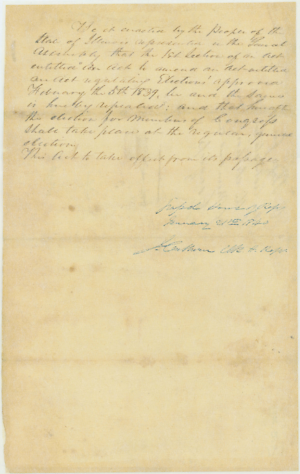 Be it enacted by the People of the
State of Illinois represented in the General
Assembly, That the 1st Section of an Act
entitled "An Act to amend an Act entitled
an Act regulating Elections" approved
February the 5th 1839, be and the same
is hereby repealed: and that hereafter
the election for Members of Congress
shall take place at the regular general
election.
This Act to take effect from its passage.
Passed House of Reps.
Clk H. Reps